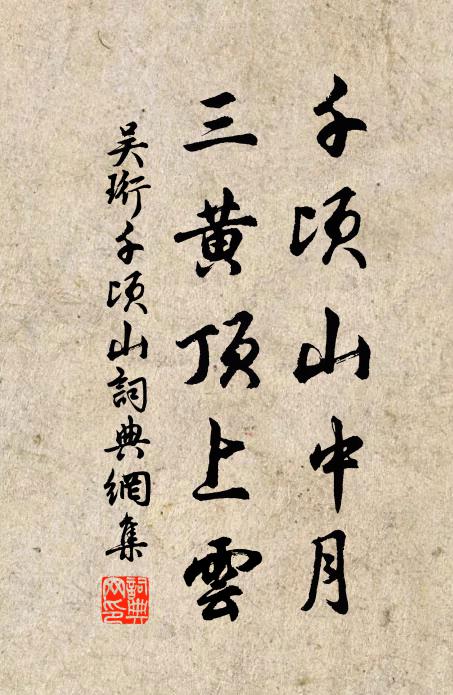 千顷山中月
三黄顶上雲
吴珩千顷山詞典網集
詞典网印